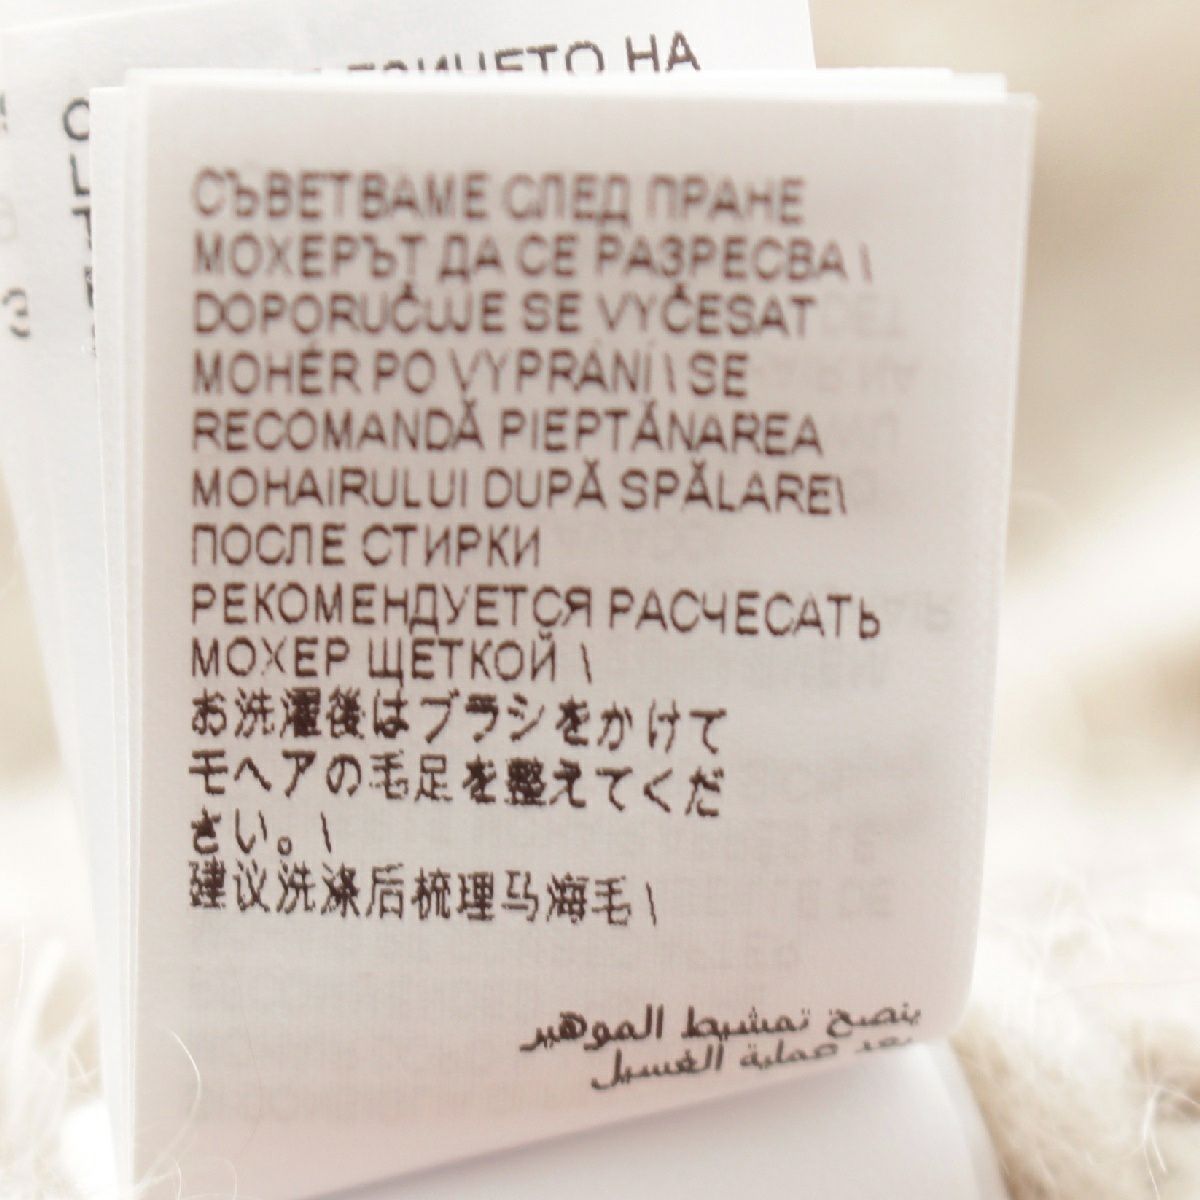 НА
СЪВЕТВАМЕ СЛЕД ПРАНЕ
МОХЕРЪТ ДА СЕ РАЗРЕСВА \
DOPORUČUJE SE VYČESAT
MOHÉR PO VYPRÁNÍ \ SE
RECOMANDĂ PIEPTĂNAREA
MOHAIRULUI DUPĂ SPĂLARE\
ПОСЛЕ СТИРКИ
РЕКОМЕНДУЕТСЯ РАСЧЕСАТЬ
МОХЕР ЩЕТКОЙ \
お洗濯後はブラシをかけて
モヘアの毛足を整えてくだ
さい。\
建议洗涤后梳理马海毛 \
ينصح تمشيط الموهير
بعد عملية الغسيل